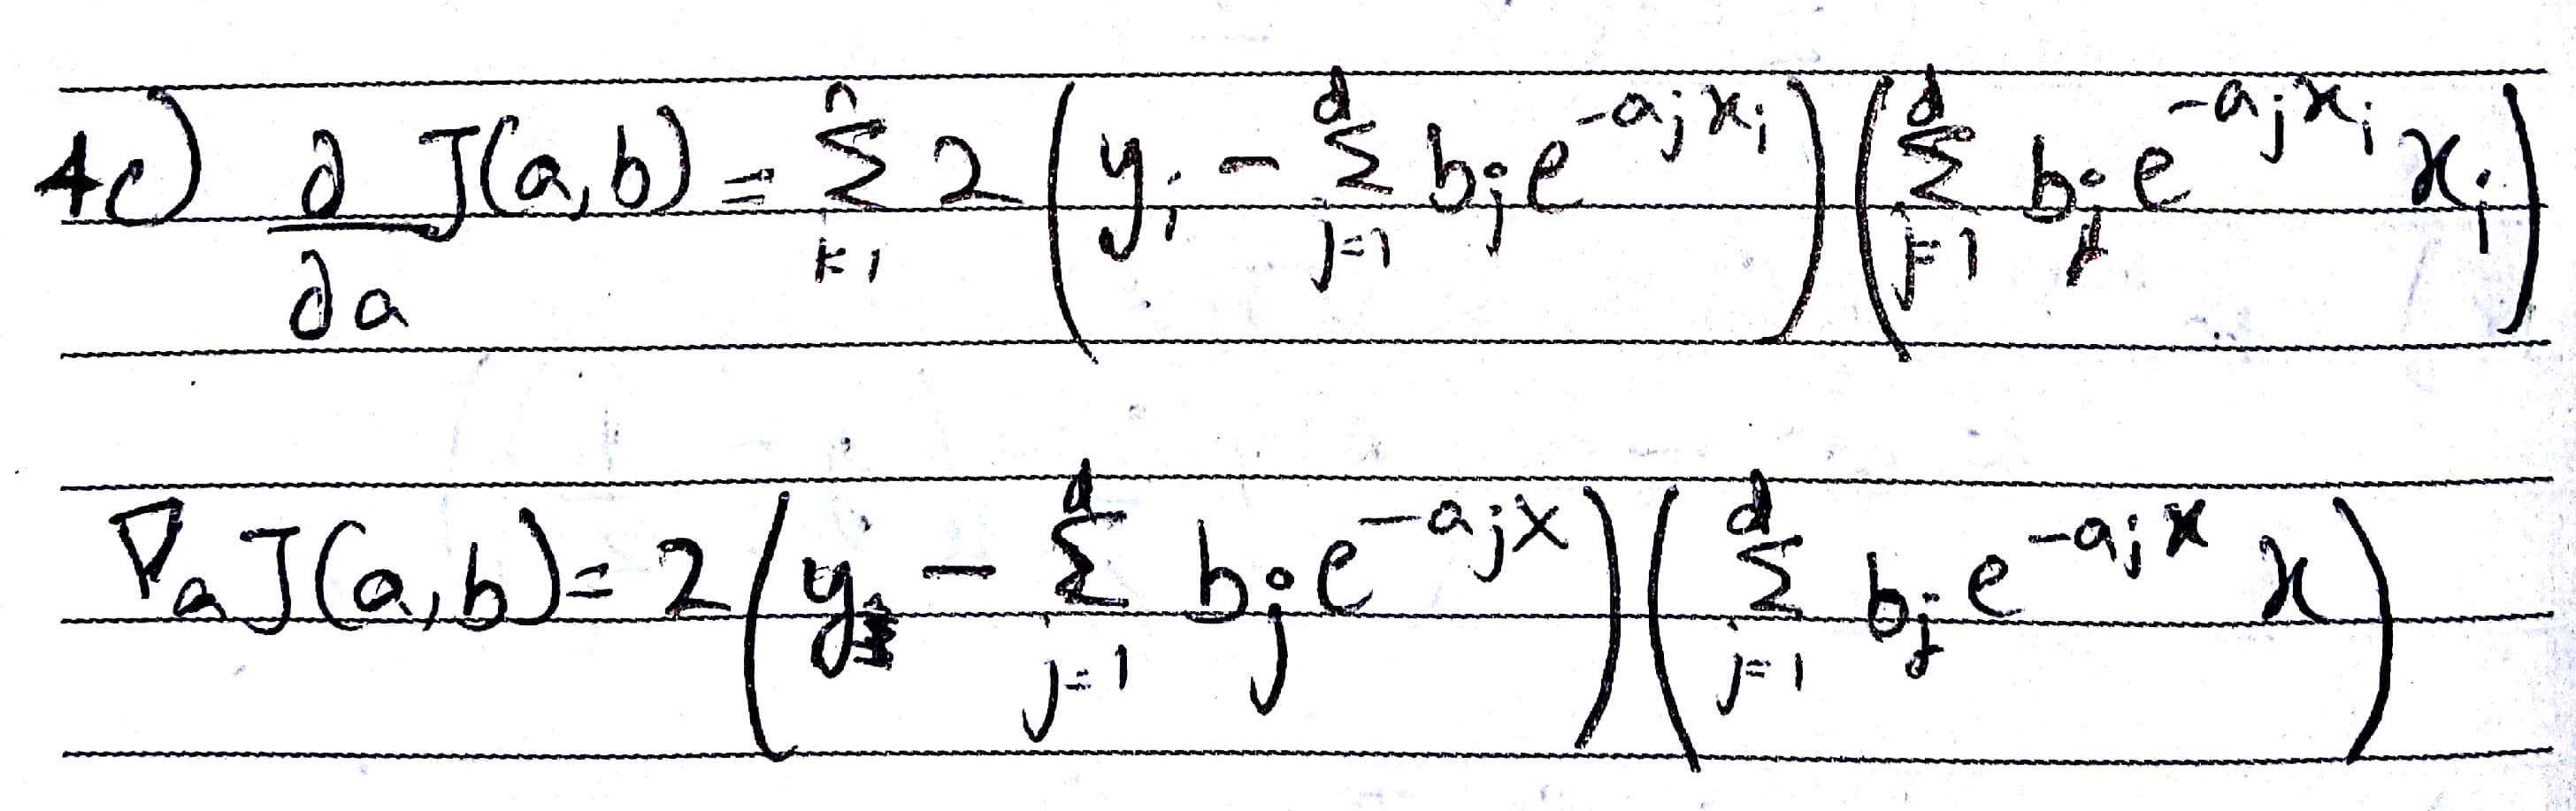 4c) ∂/∂a J(a,b) = Σ_{i=1}^{n} 2 (y_i - Σ_{j=1}^{d} b_j e^{-a_j x_i}) (Σ_{j=1}^{d} b_j e^{-a_j x_i} x_i)
∇_a J(a,b) = 2 (y - Σ_{j=1}^{d} b_j e^{-a_j x}) (Σ_{j=1}^{d} b_j e^{-a_j x} x)